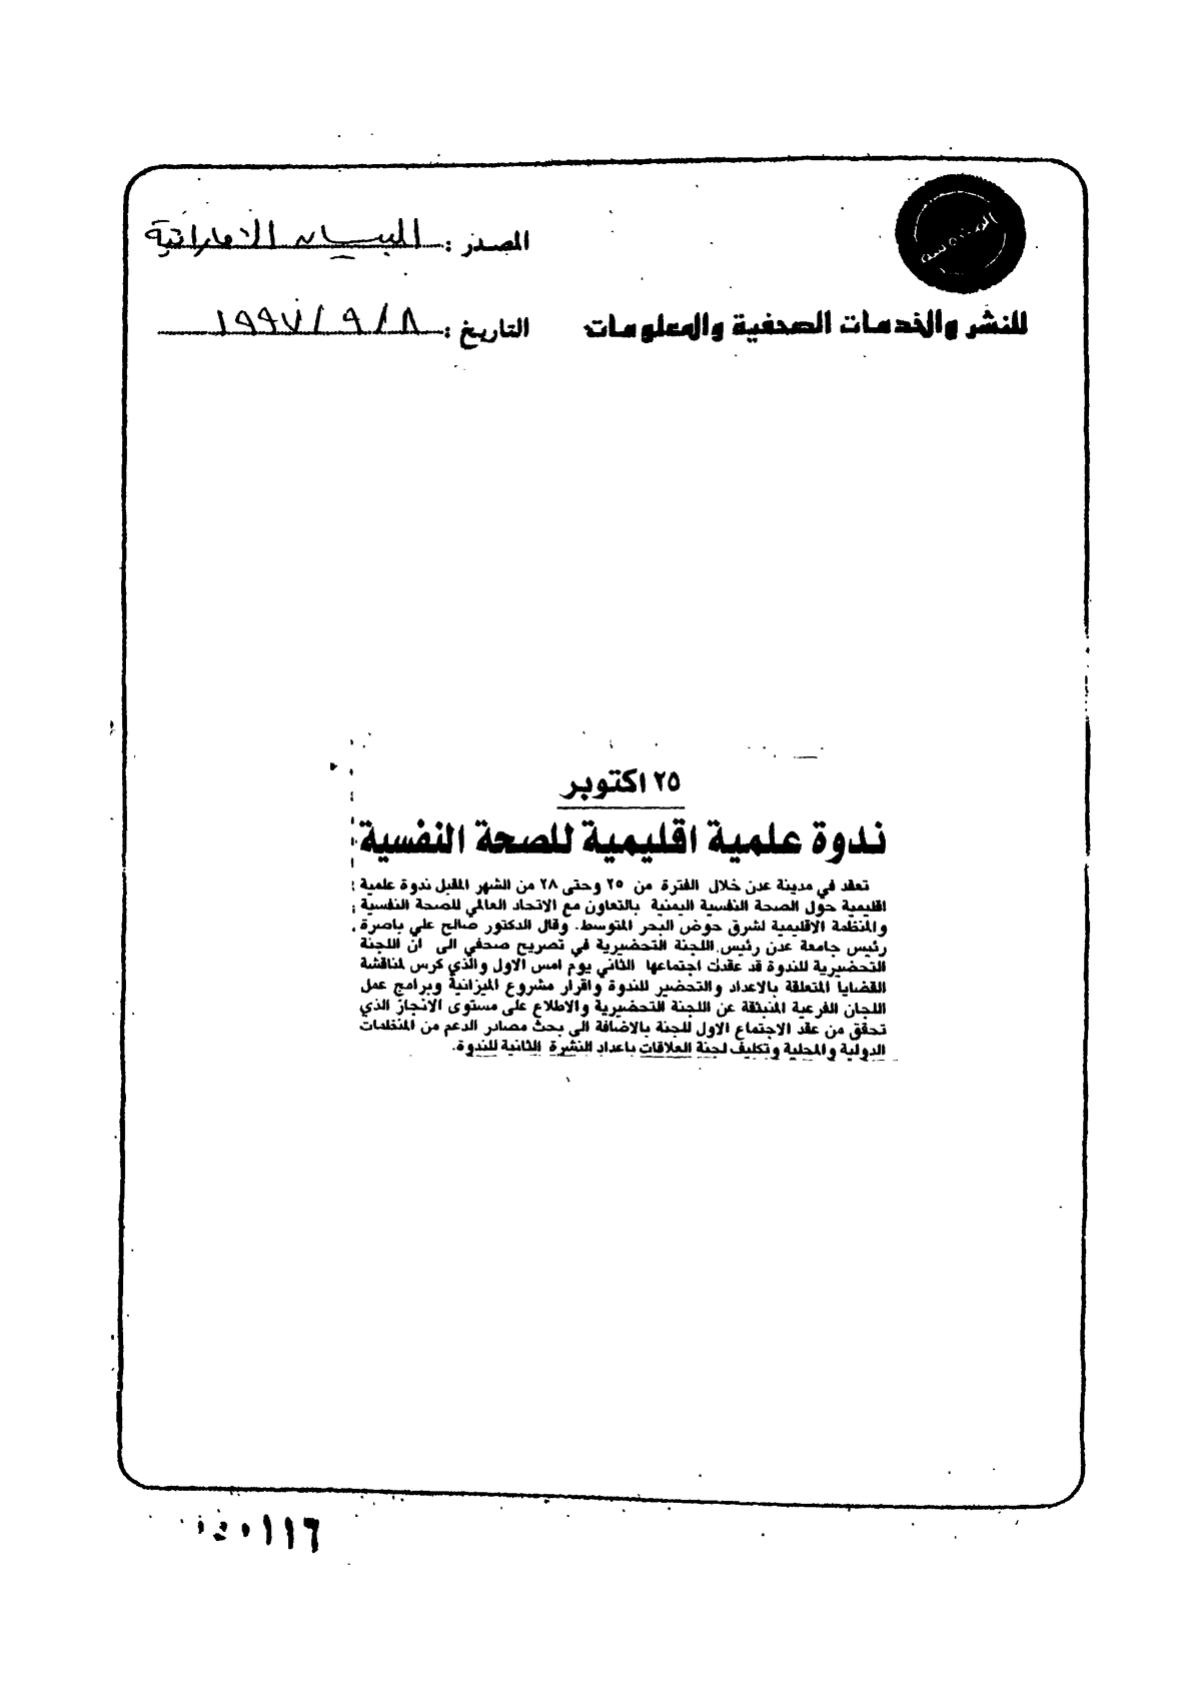 المصدر : البيان الاماراتية
للنشر والخدمات الصحفية والمعلومات
التاريخ : ٨ / ٩ / ١٩٩٧
٢٥ اكتوبر
ندوة علمية اقليمية للصحة النفسية
تعقد في مدينة عدن خلال الفترة من ٢٥ وحتى ٢٨ من الشهر المقبل ندوة علمية
اقليمية حول الصحة النفسية اليمنية بالتعاون مع الاتحاد العالمي للصحة النفسية
والمنظمة الاقليمية لشرق حوض البحر المتوسط. وقال الدكتور صالح علي باصرة
رئيس جامعة عدن رئيس اللجنة التحضيرية في تصريح صحفي الى ان اللجنة
التحضيرية للندوة قد عقدت اجتماعها الثاني يوم امس الاول والذي كرس لمناقشة
القضايا المتعلقة بالاعداد والتحضير للندوة واقرار مشروع الميزانية وبرامج عمل
اللجان الفرعية المنبثقة عن اللجنة التحضيرية والاطلاع على مستوى الانجاز الذي
تحقق من عقد الاجتماع الاول للجنة بالاضافة الى بحث مصادر الدعم من المنظمات
الدولية والمحلية وتكليف لجنة العلاقات باعداد النشرة الثانية للندوة.